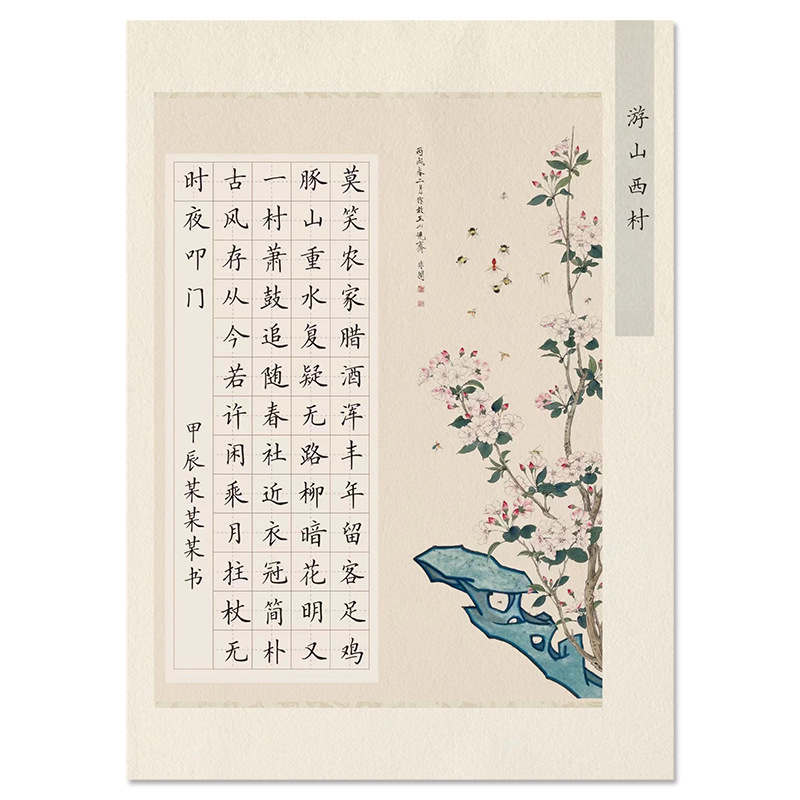 游山西村
丙戌春二月
莫笑农家腊酒浑丰年留客足鸡
豚山重水复疑无路柳暗花明又
一村萧鼓追随春社近衣冠简朴
古风存从今若许闲乘月拄杖无
时夜叩门
甲辰某某某书